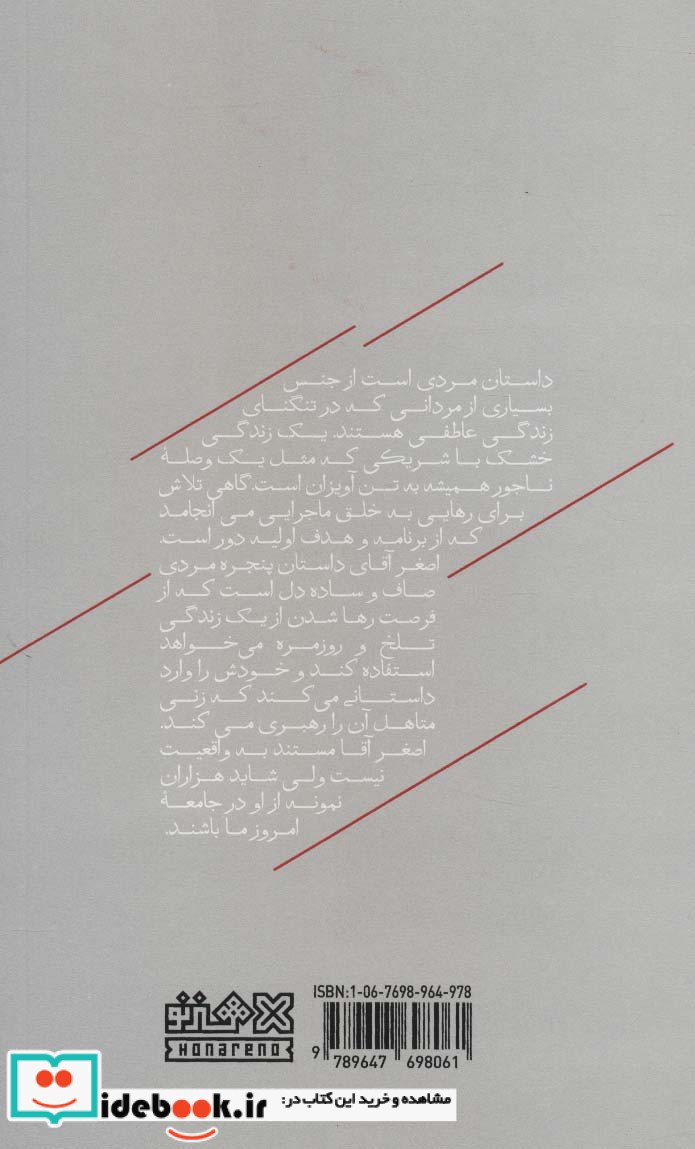 داستان مردی است از جنس
بسیاری از مردانی که در تنگنای
زندگی عاطفی هستند. یک زندگی
خشک با شریکی که مثل یک وصلهٔ
ناجور همیشه به تن آویزان است. گاهی تلاش
برای رهایی به خلق ماجرایی می انجامد
که از برنامه و هدف اولیه دور است.
اصغر آقای داستان پنجره مردی
صاف و ساده دل است که از
فرصت رها شدن از یک زندگی
تلخ و روزمره می‌خواهد
استفاده کند و خودش را وارد
داستانے می‌کند که زنی
متاهل آن را رهبری می کند.
اصغر آقا مستند به واقعیت
نیست ولی شاید هزاران
نمونه از او در جامعهٔ
امروز ما باشند.
هنرنو
HONARENO
ISBN:1-06-7698-964-978
9 789647 698061
idebook.ir
مشاهده و خرید این کتاب در: